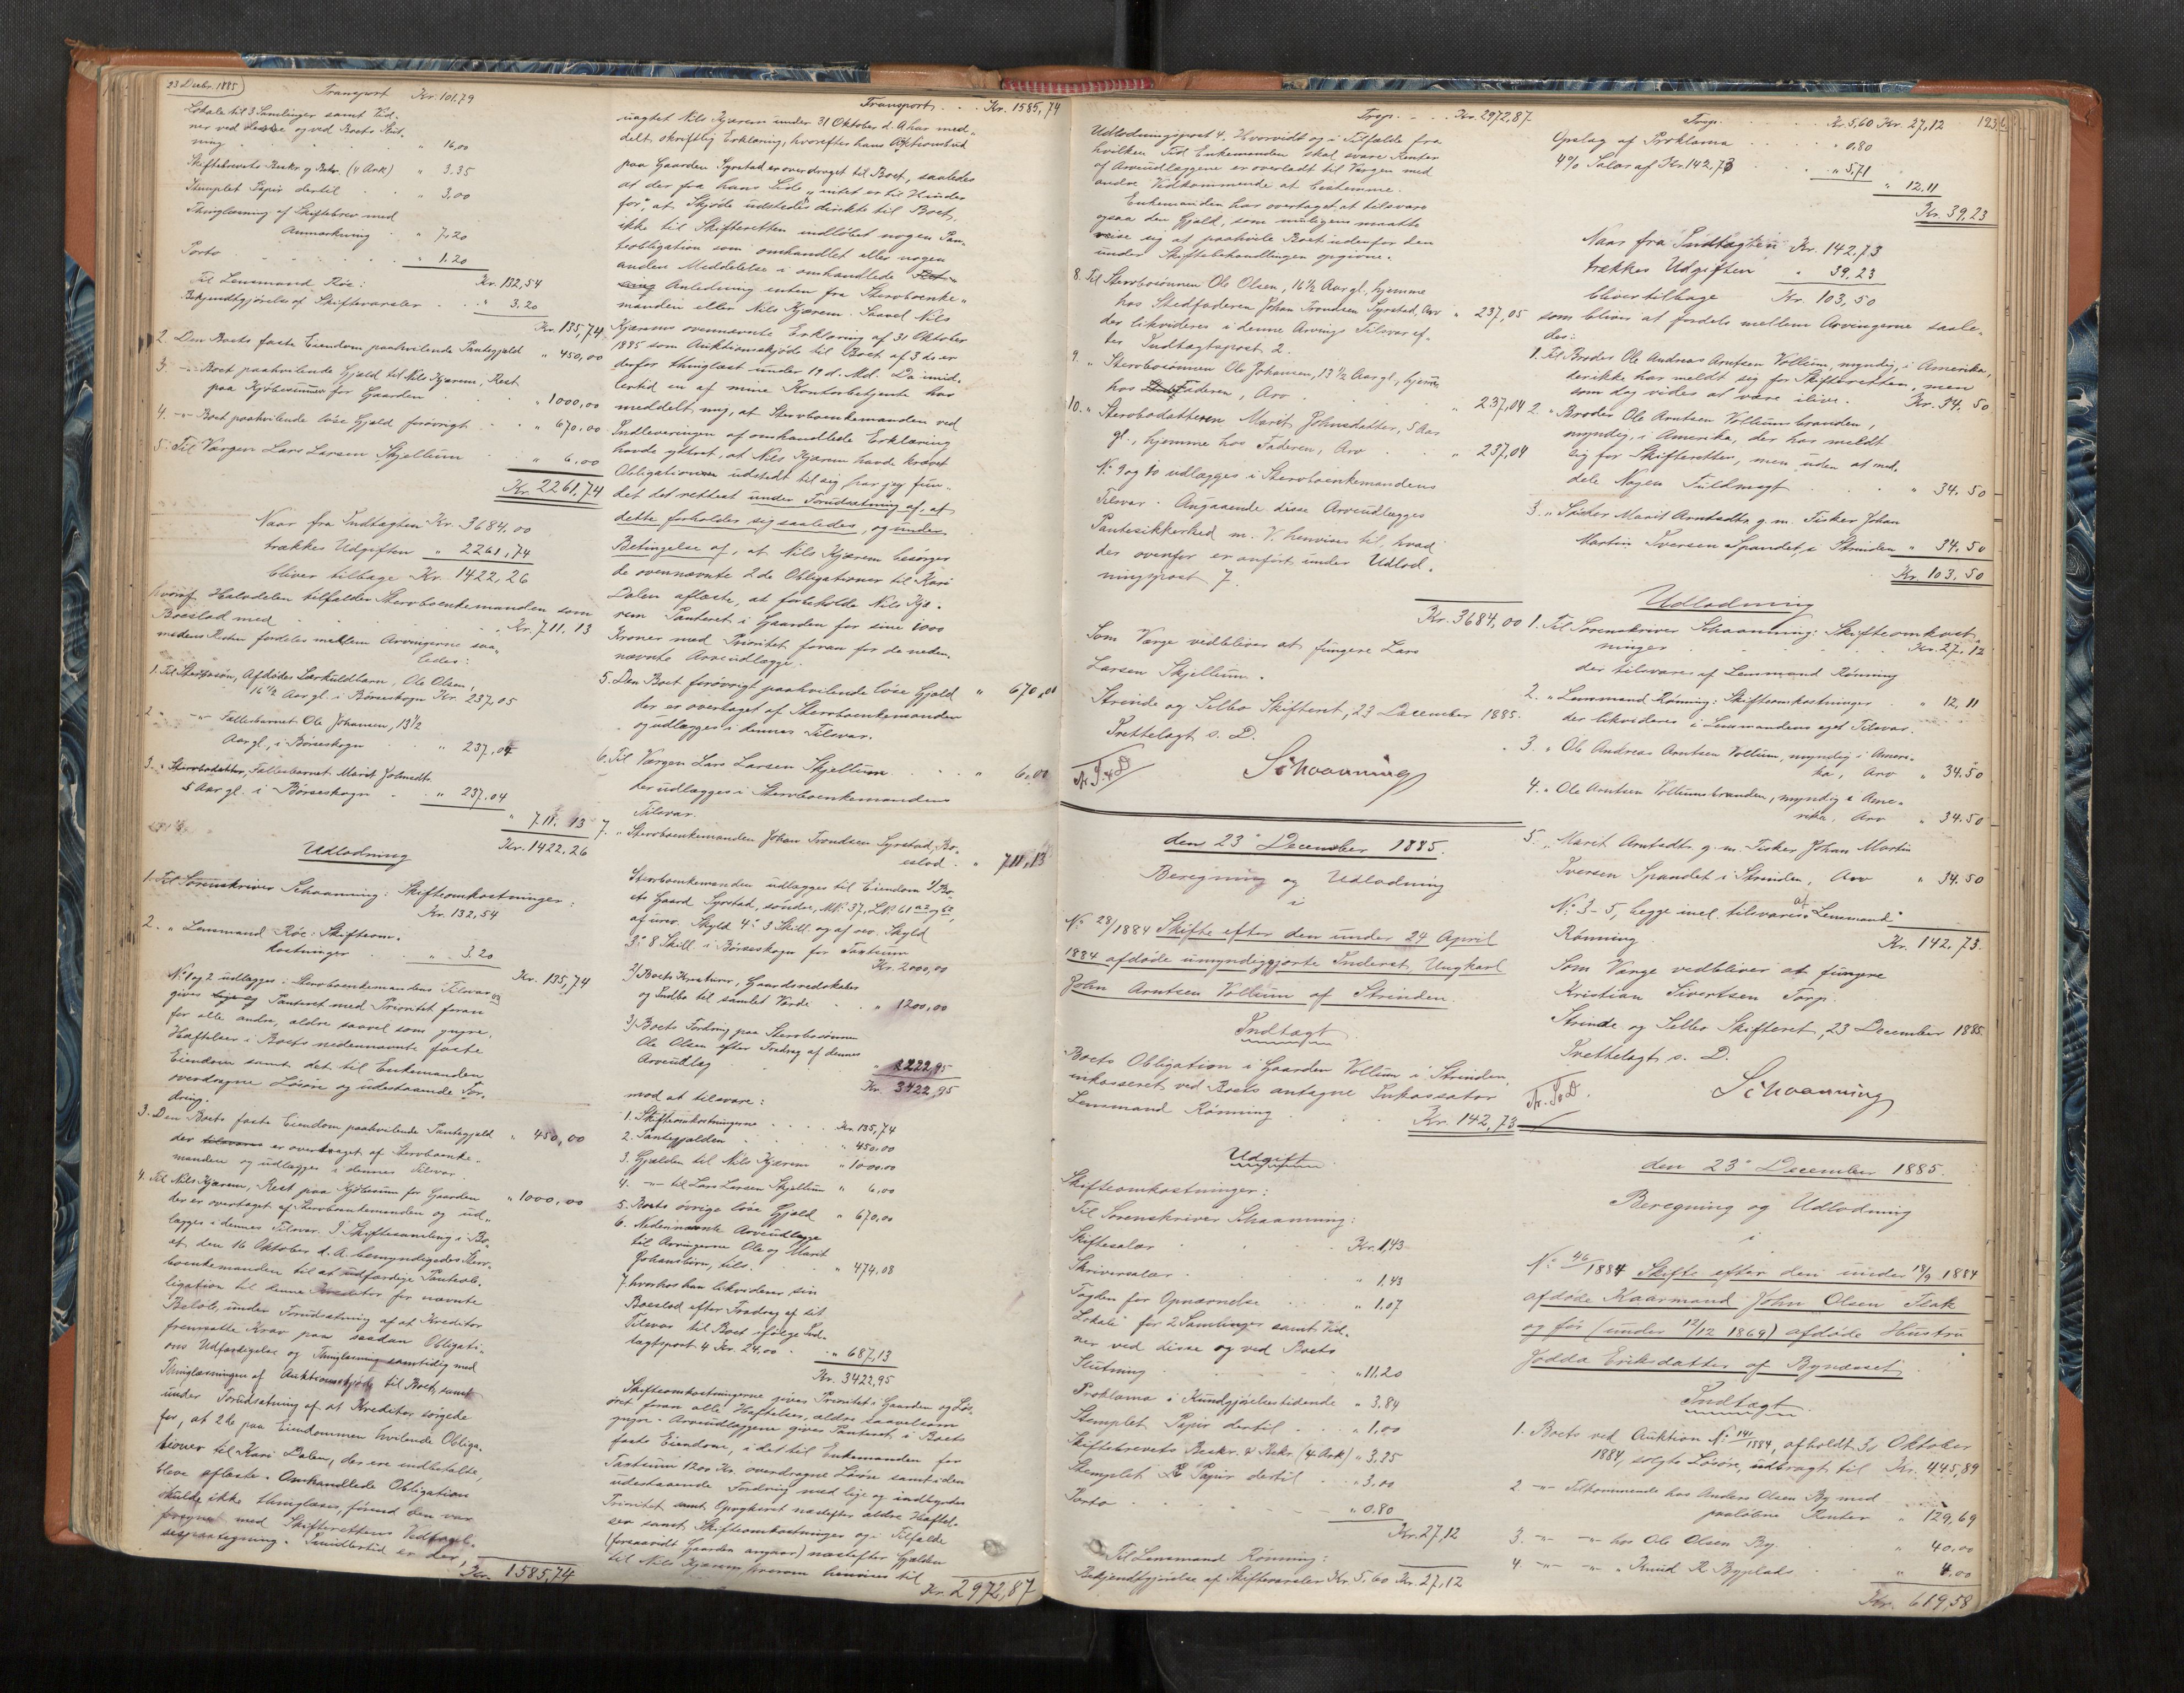 23 Decbr. 1885
Transport Kr. 101.79
Lokale til 3 Samlinger samt Vid-
ner ved disse og ved Boets Slut-
ning " 16,00
Skiftebrevets Beskr. og Bekr. (4 Ark) " 3.35
Stemplet Papir dertil " 3,00
Thinglæsning af Skiftebrev med
Anmærkning " 7,20
Porto " 1.20
Kr. 132,54
Til Lensmand Röe:
Bekjendtgjörelse af Skiftevarsler " 3.20
Kr. 135,74
2. Den Boets faste Eiendom paahvilende Pantegjæld " 450,00
3. -"- Boet paahvilende Gjæld til Nils Kjærem, Rest
paa Kjöbesummen for Gaarden " 1000,00
4. -"- Boet paahvilende löse Gjæld forövrigt " 670,00
5. Til Værgen Lars Larsen Skjellum " 6,00
Kr. 2261.74
Naar fra Indtægten Kr. 3684,00
trækkes Udgiften " 2261,74
bliver tilbage Kr. 1422,26
hvoraf Halvdelen tilfalder Stervboenkemanden som
Boeslod med Kr. 711.13
medens Resten fordeles mellem Arvingerne saa-
ledes:
1. Til Afdödes Særkuldbarn, Ole Olsen,
16½ Aar gl. i Börseskogn Kr. 237,05
2. " -"- Fællesbarnet Ole Johansen, 13½
Aar gl., i Börseskogn " 237,04
3. " Stervbodatter, Fællesbarnet Marit Johnsdtr.
5 Aar gl. i Börseskogn " 237.04
" 711.13
Kr. 1422.26
Udlodning
1. Til Sorenskriver Schaanning: Skifteomkostninger:
Kr. 132,54
2. " Lensmand Röe: Skifteom-
kostninger " 3.20
Kr. 135,74
No 1 og 2 udlægges i Stervboenkemandens Tilsvar og
gives Panteret med Prioritet foran
for alle andre, ældre saavel som yngre,
Hæftelser i Boets nedennævnte faste
Eiendom samt det til Enkemanden
overdragne Lösöre og udestaaende For-
dring.
3. Den Boets faste Eiendom paahvilende Pantegjæld " 450,00
der er overtaget af Stervboenke-
manden og udlægges i dennes Tilsvar.
4. Til Nils Kjærem, Rest paa Kjöbesum for Gaarden " 1000,00
der er overtaget af Stervboenkemanden og ud-
lægges i dennes Tilsvar. I Skiftesamling i Bo-
et den 16 Oktober d. A. bemyndigedes Sterv-
boenkemanden til at udfærdige Panteob-
ligation til denne Kreditor for nævnte
Belöb, under Forudsætning af at Kreditor
fremsatte Krav paa saadan Obligati-
ons Udfærdigelse og Thinglæsning samtidig med
Thinglæsningen af Auktionsskjöde til Boet, samt
under Forudsætning af at Kreditor sörgede
for, at 2de paa Eiendommen hvilende Obliga-
tioner til Kari Dalen, der ere indbetalte,
bleve aflæste. Omhandlede Obligation
skulde ikke thinglæses, forend den var
forsynet med Skifterettens Vedtagel-
sespaategning. Imidlertid er der,
Kr. 1585,74
Transport Kr. 1585,74
uagtet Nils Kjærem under 31 Oktober d. A. har med-
delt skriftlig Erklæring, hvorefter hans Auktionsbud
paa Gaarden Syrstad er overdraget til Boet, saaledes
at der fra hans Side "intet er til Hinder
for", at Skjöde udstedes direkte til Boet,
ikke til Skifteretten indlöbet nogen Pan-
teobligation som omhandlet eller nogen
anden Meddelelse i omhandlede
Anledning enten fra Stervboenke-
manden eller Nils Kjærem. Saavel Nils
Kjærems ovennævnte Erklæring af 31 Oktober
1885 som Auktionsskjöde til Boet af 3 ds er
derfor thinglæst under 19 d. Md. Da imid-
lertid en af mine Kontorbetjente har
meddelt mig, at Stervboenkemanden ved
Indleveringen af omhandlede Erklæring
havde yttret, at Nils Kjærem havde krævet
Obligationen udstedt til sig, har jeg fun-
det det rettest under Forudsætning af, at
dette forholder sig saaledes, og under
Betingelse af, at Nils Kjærem besörger
de ovennævnte 2de Obligationer til Kari
Dalen aflæste, at forbeholde Nils Kjæ-
rem Panteret i Gaarden for sine 1000
Kroner med Prioritet foran for de neden-
nævnte Arveudlægge.
5. Den Boet forövrigt paahvilende löse Gjæld " 670,00
der er overtaget af Stervboenkemanden
og udlægges i dennes Tilsvar.
6. Til Værgen Lars Larsen Skjellum " 6,00
der udlægges i Stervboenkemandens
Tilsvar.
7. " Stervboenkemanden Johan Trondsen Syrstad, Bo-
eslod " 711,13
Stervboenkemanden udlægges til Eiendom 1/ Bo-
ets Gaard Syrstad, söndre, M.No 37, L.No 61 a2 og 62,
af urev. Skyld 4" 3 Skill. og af rev. Skyld
3: 8 Skill. i Börseskogn for Taxtsum
Kr. 2000,00
2/ Boets Kreature, Gaardsredskaber
og Indbo til samlet Værdi " 1200,00
3/ Boets Fordring paa Stervbosönnen
Ole Olsen efter Fradrag af dennes
Arveudlæg " 222,95
Kr. 3422,95
mod at tilsvare:
1. Skifteomkostningerne Kr. 135,74
2. Pantegjælden " 450.00
3. Gjælden til Nils Kjærem " 1000.00
4. -"- til Lars Larsen Skjellum " 6,00
5. Boets övrige löse Gjæld " 670,00
6. Nedennævnte Arveudlægge
til Arvingerne Ole og Marit
Johansbörn, tils. " 474,08
7. hvorhos han likviderer sin
Boeslod efter Fradrag af sit
Tilsvar til Boet ifölge Ind-
tægtspost 4 Kr. 24,00 " 687,13
Kr. 3422,95
Skifteomkostningerne gives Prioritet i Gaarden og Lös-
öret foran alle Hæftelser, ældre saavelsom
yngre. Arveudlæggene gives Panteret i Boets
faste Eiendom, i det til Enkemanden for
Taxtsum 1200 Kr. overdragne Lösöre samt i den
udestaaende Fordring med lige og indbyrdes
Prioritet samt Oprykkeret næstefter ældre Hæftel-
ser samt Skifteomkostninger og i Tilfælde
(forsaavidt Gaarden angaar) næstefter Gjælden
til Nils Kjærem, hvorom henvises til
Kr. 2972,87
Trsp. Kr. 2972,87
Udlodningspost 4. Hvorvidt og i Tilfælde fra
hvilken Tid Enkemanden skal svare Renter
af Arveudlæggene er overladt til Værgen med
andre Vedkommende at bestemme.
Enkemanden har overtaget at tilsvare
ogsaa den Gjæld, som muligens maatte
vise sig at paahvile Boet udenfor den
under Skiftebehandlingen opgivne.
8. Til Stervbosönnen Ole Olsen, 16½ Aar gl., hjemme
hos Stedfaderen Johan Trondsen Syrstad, Arv " 237,05
der likvideres i denne Arvings Tilsvar ef-
ter Indtægtspost 2.
9. " Stervbosönnen Ole Johansen, 13½ Aar gl., hjemme
hos Faderen, Arv " 237,04
10. " Stervbodatteren Marit Johnsdatter, 5 Aar
gl., hjemme hos Faderen, Arv " 237,04
No 9 og 10 udlægges i Stervboenkemandens
Tilsvar. Angaaende disse Arveudlægges
Pantesikkerhed m. V. henvises til, hvad
der ovenfor er anfört under Udlod-
ningspost 7.
Kr. 3684,00
Som Værge vedbliver at fungere Lars
Larsen Skjellum.
Strinde og Selbo Skifteret, 23 December 1885.
Trettelagt s. D.
Schaanning
den 23de December 1885.
Beregning og Udlodning
i
No 28/1884 Skifte efter den under 24 April
1884 afdöde umyndiggjorte Inderst, Ungkarl
John Arntsen Vollum af Strinden.
Indtægt
Boets Obligation i Gaarden Vollum i Strinden,
inkasseret ved Boets antagne Inkassator
Lensmand Rönning Kr. 142,73
Udgift
Skifteomkostninger:
Til Sorenskriver Schaanning:
Skiftesalær Kr. 1,43
Skriversalær " 1,43
Tægden for Opnævnelse " 1.07
Lokale for 2 Samlinger samt Vid-
ner ved disse og ved Boets
Slutning " 11,20
Proklama i Kundgjörelsestidende " 3,84
Stemplet Papir dertil " 1,00
Skiftebrevets Beskr. & Bekr. (4 Ark) " 3,35
Stemplet Papir dertil " 3,00
Porto " 0.80
Kr. 27,12
Til Lensmand Rönning:
Bekjendtgjörelse af Skiftevarsler Kr. 5,60 Kr. 27,12
Trsp. Kr. 5,60 Kr. 27,12
123
Opslag af Proklama " 0.80
4% Salær af Kr. 142,73 " 5,71
" 12.11
Kr. 39,23
Naar fra Indtægten Kr. 142,73
trækkes Udgiften " 39.23
bliver tilbage Kr. 103,50
som bliver at fordele mellem Arvingerne saale-
des:
1. Til Broder Ole Andreas Arntsen Vollum, myndig, i Amerika,
der ikke har meldt sig for Skifteretten, men
som dog vides at være ilive. Kr. 34.50
2. " Broder Ole Arntsen Vollumsbranden,
myndig, i Amerika, der har meldt
sig for Skifteretten, men uden at med-
dele Nogen Fuldmagt " 34.50
3. " Söster Marit Arntsdtr. g. m. Fisker Johan
Martin Iversen Spandet i Strinden " 34.50
Kr. 103,50
Udlodning
1. Til Sorenskriver Schaanning: Skifteomkost-
ninger Kr. 27,12
der tilsvares af Lensmand Rönning
2. " Lensmand Rönning: Skifteomkostninger " 12,11
der likvideres i Lensmandens eget Tilsvar.
3. " Ole Andreas Arntsen Vollum, myndig i Ameri-
ka, Arv " 34.50
4. " Ole Arntsen Vollumsbranden, myndig i Ame-
rika, Arv " 34.50
5. " Marit Arntsdtr. g. m. Fisker Johan Martin
Iversen Spandet i Strinden, Arv " 34.50
No 3-5, begge incl. tilsvares af Lensmand
Rönning.
Kr. 142,73.
Som Værge vedbliver at fungere
Kristian Sivertsen Torp.
Strinde og Selbo Skifteret, 23 December 1885.
Trettelagt s. D.
Schaanning
den 23de December 1885.
Beregning og Udlodning
i
No 46/1884 Skifte efter den under 18/9 1884
afdöde Kaarmand John Olsen Flak
og för (under 12/12 1869) afdöde Hustru
Jodda Eriksdatter af Bynæsset.
Indtægt
1. Boets ved Auktion No 141/1884, afholdt 30 Oktober
1884, solgte Lösöre, udbragt til Kr. 445,89
2. -"- Tilkommende hos Anders Olsen By med
paalöbne Renter " 129,69
3. -"- -"- hos Ole Olsen By " 40,00
4. -"- -"- " Knud R. Byplads " 4,00
Kr. 619,58